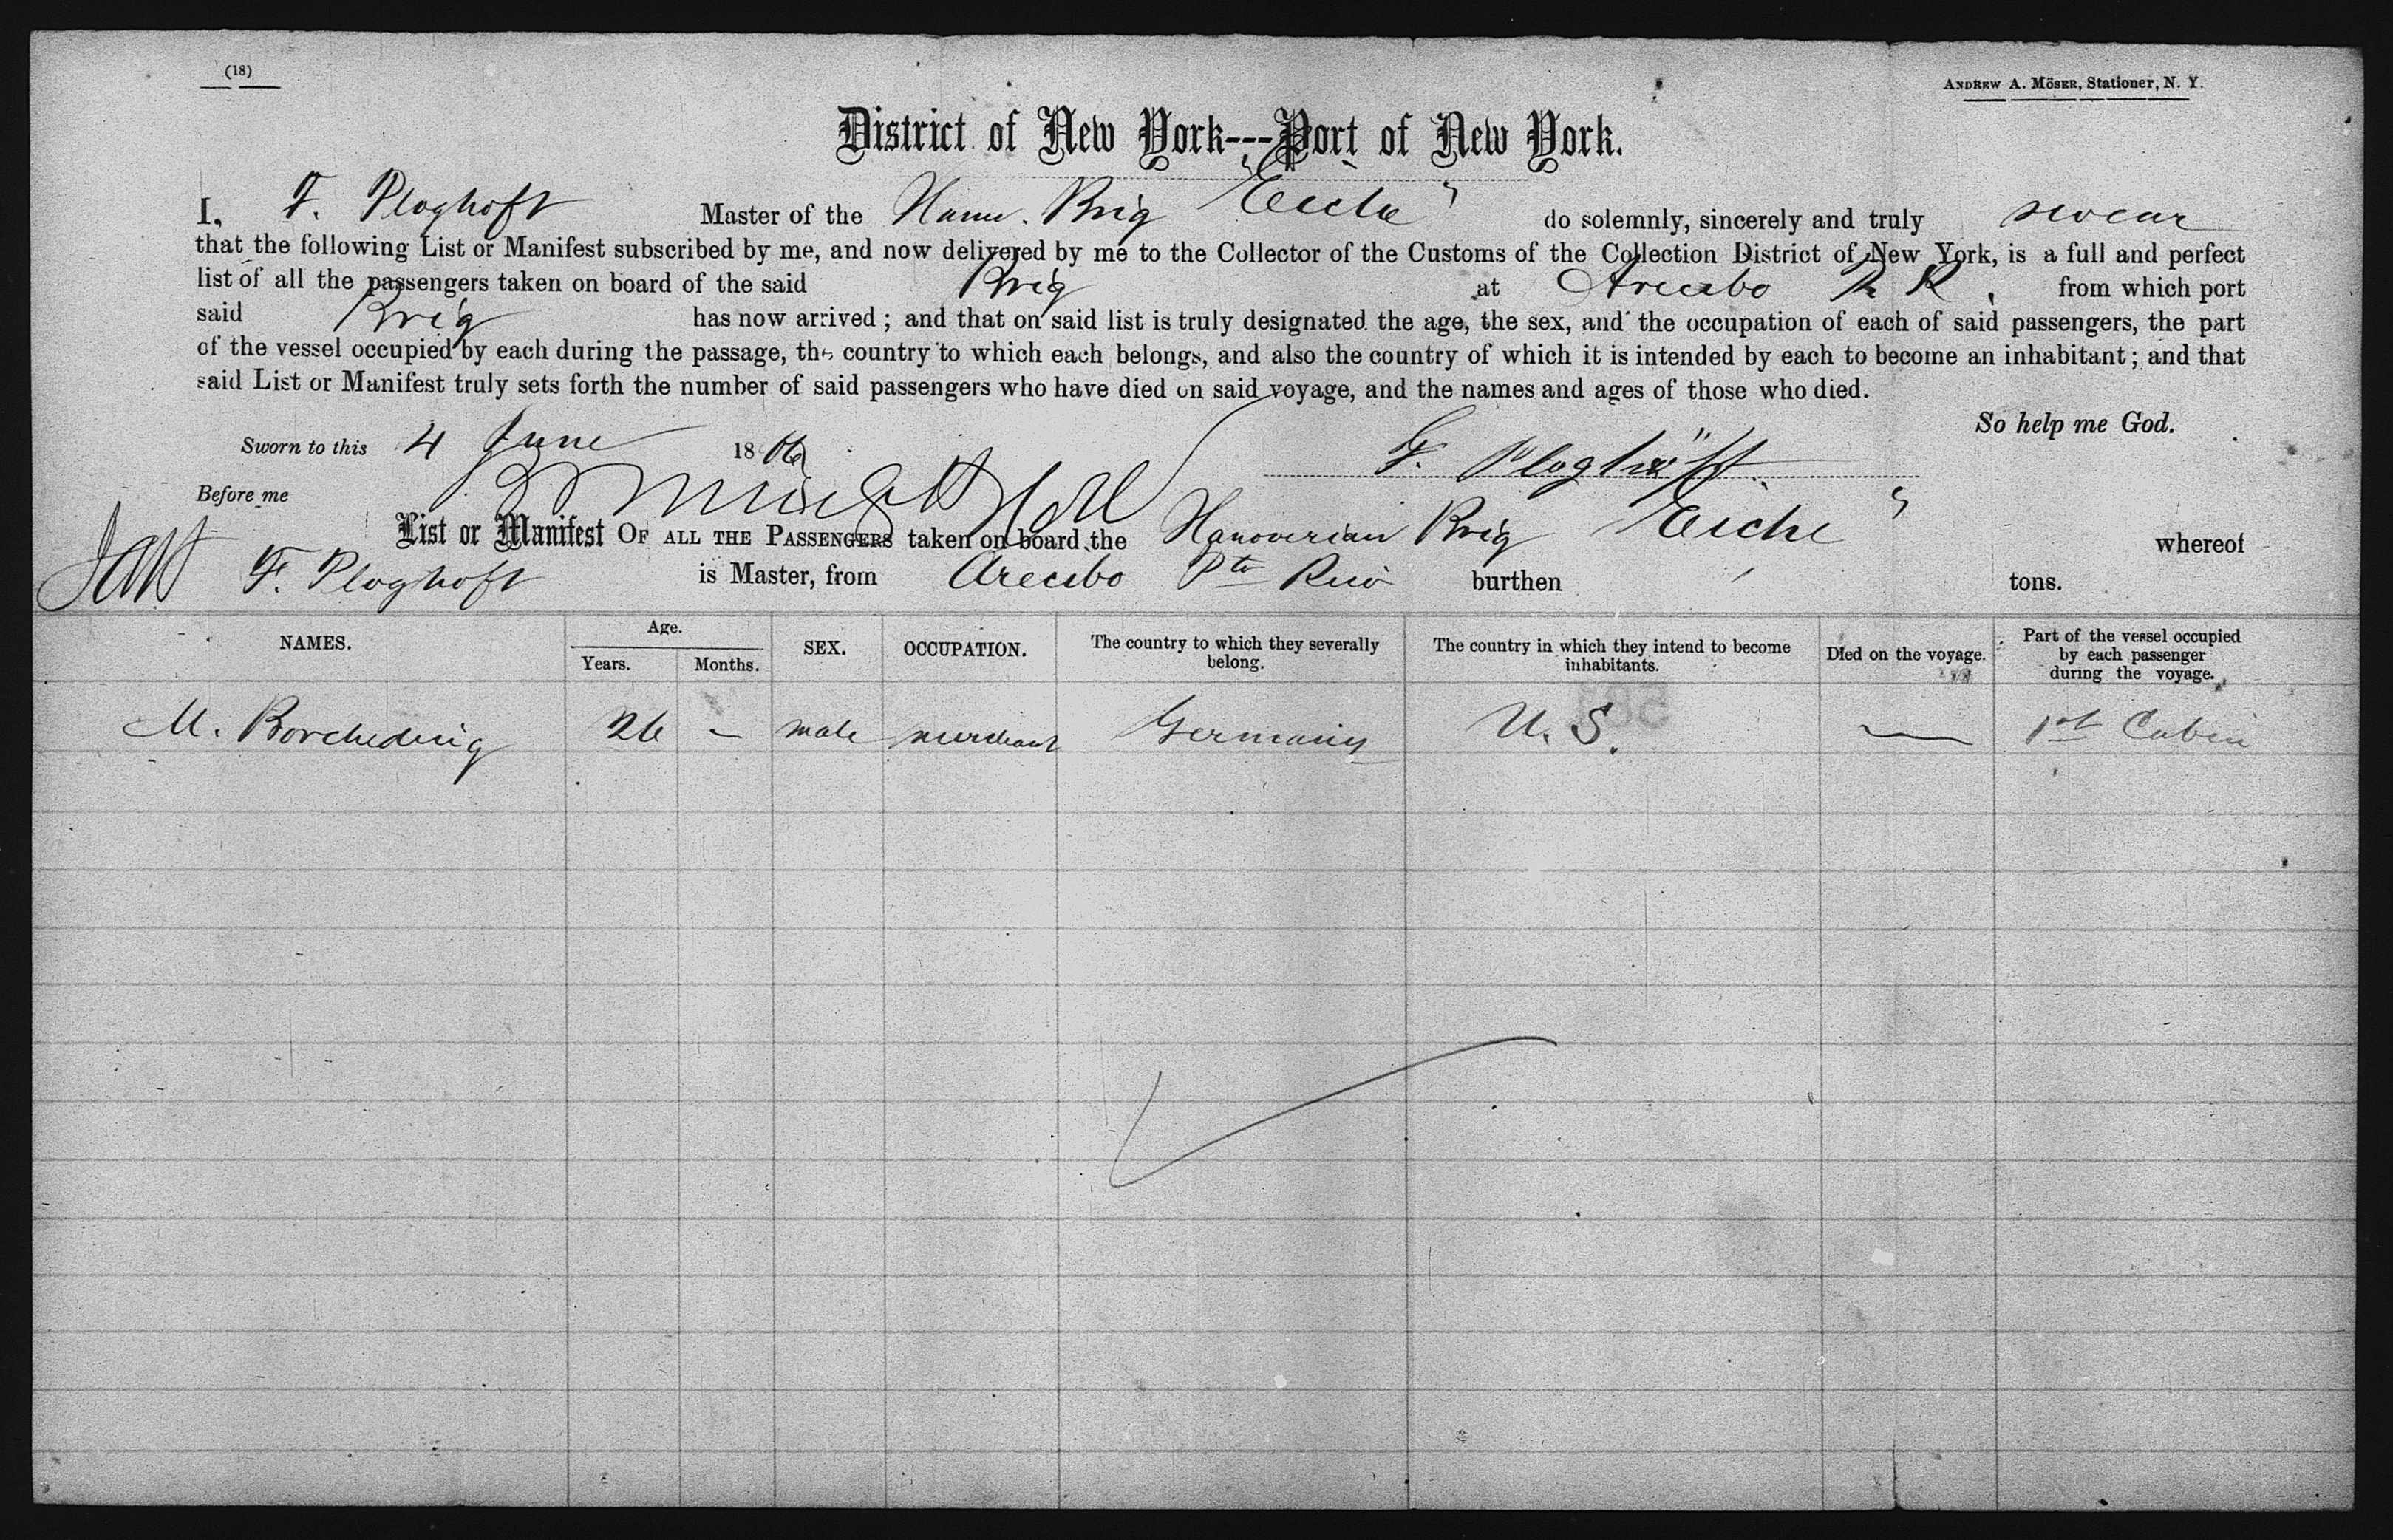 (18)
ANDREW A. MÖSER, Stationer, N. Y.
District of New York---Port of New York.
I, F. Ploghoft Master of the Hann. Brig "Eiche" do solemnly, sincerely and truly swear
that the following List or Manifest subscribed by me, and now delivered by me to the Collector of the Customs of the Collection District of New York, is a full and perfect
list of all the passengers taken on board of the said Brig at Arecibo P. R. from which port
said Brig has now arrived; and that on said list is truly designated the age, the sex, and the occupation of each of said passengers, the part
of the vessel occupied by each during the passage, the country to which each belongs, and also the country of which it is intended by each to become an inhabitant; and that
said List or Manifest truly sets forth the number of said passengers who have died on said voyage, and the names and ages of those who died.
So help me God.
Sworn to this 4 June 1866 F. Ploghöft
Before me
List or Manifest OF ALL THE PASSENGERS taken on board the Hanoverian Brig "Eiche" whereof
F. Ploghoft is Master, from Arecibo Pto Rico burthen tons.
NAMES. Age. Years. Months. SEX. OCCUPATION. The country to which they severally belong. The country in which they intend to become inhabitants. Died on the voyage. Part of the vessel occupied by each passenger during the voyage.
M. Borcheding 26 - male merchant Germany U. S. — 1st Cabin